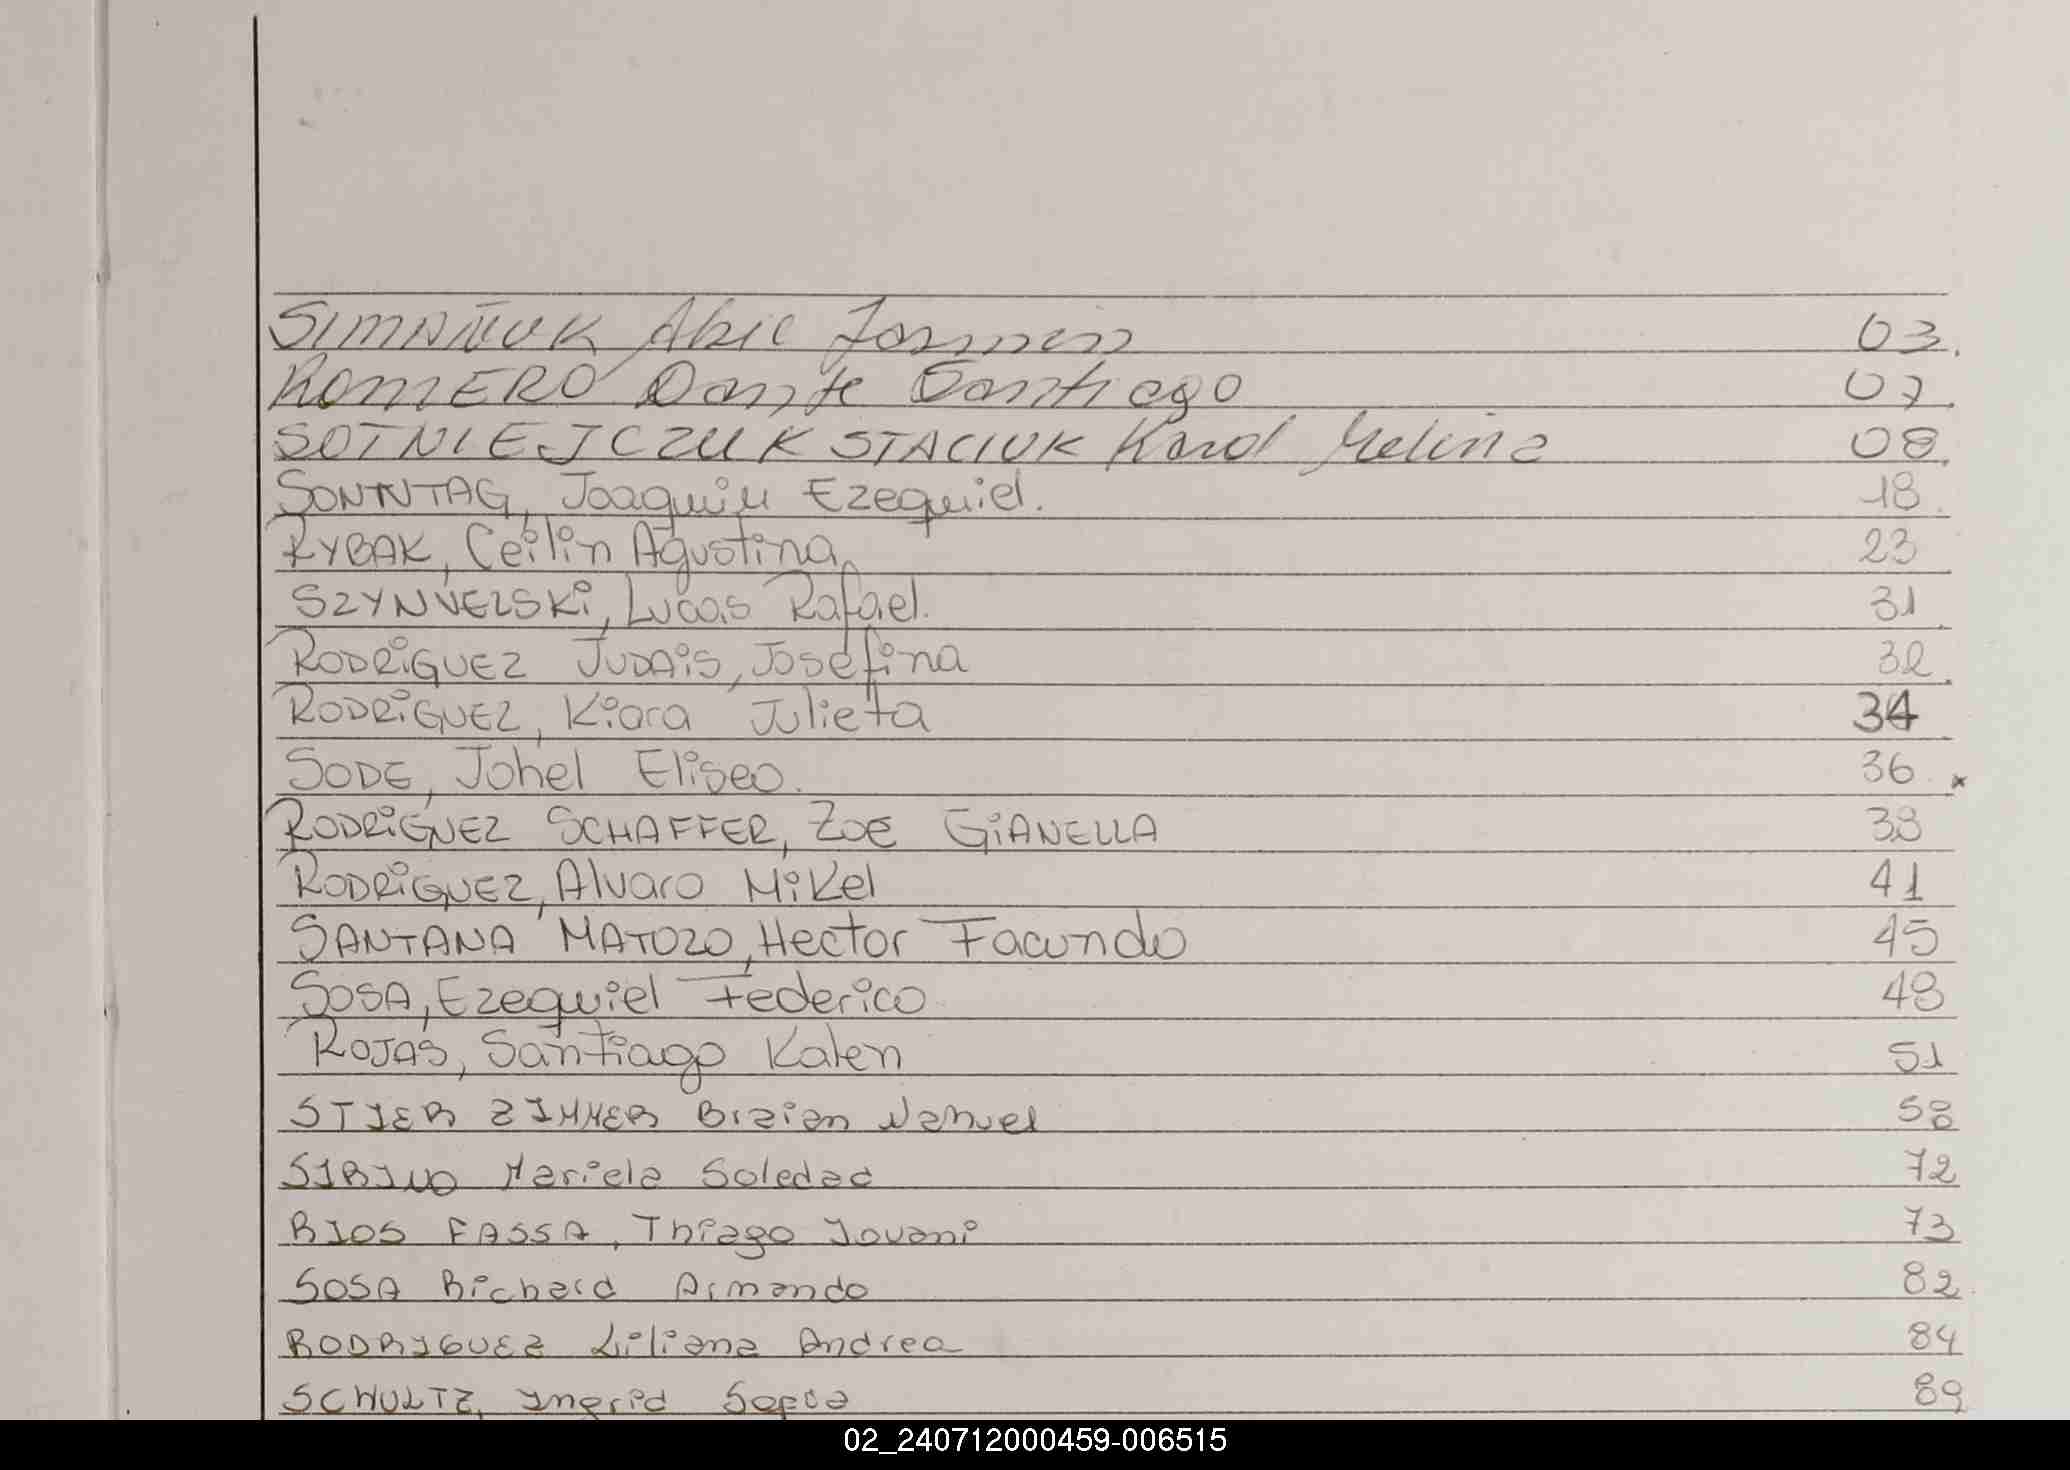 SIMAÑUK Abil Jasmin 03.
ROMERO Dante Santiago 07.
SOTNIEJCZUK STACIUK Karol Melina 08.
SONNTAG, Joaquin Ezequiel. 18.
RYBAK, Ceilin Agustina. 23
SZYNVELSKi, Lucas Rafael. 31.
RODRiGUEZ JUDAiS, Josefina 32.
RODRiGUEZ, Kiara Julieta 34
SODE, Johel Eliseo. 36 x
RODRiGNEZ SCHAFFER, ZOE GiANELLA 38
RODRiGUEZ, Alvaro Mikel 41
SANTANA MATOZO, Hector Facundo 45
SOSA, Ezequiel Federico 48
ROJAS, Santiago Kalen 51
STIER ZIMMER Brian Nahuel 58
SIRINO Mariela Soledad 72
RIOS FASSA, Thiago Jovani 73
SOSA Richard Armando 82
RODRIGUEZ Liliana Andrea 84
SCHULTZ, Ingrid 89
02_240712000459-006515